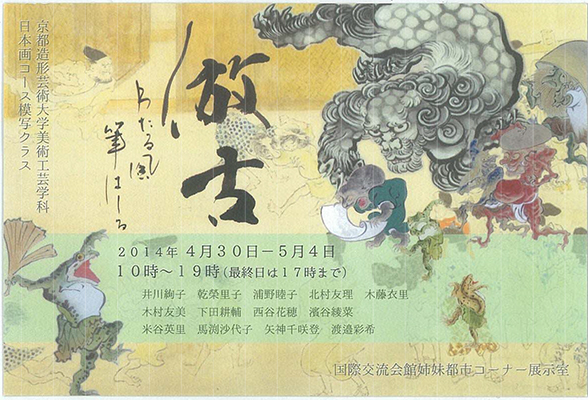 京都造形芸術大学美術工芸学科
日本画コース模写クラス
倣古
わたる風
筆はしる
2014年 4月30日－5月4日
10時～19時(最終日は17時まで)
井川絢子 乾榮里子 浦野睦子 北村友理 木藤衣里
木村友美 下田耕輔 西谷花穂 濱谷綾菜
米谷英里 馬渕沙代子 矢神千咲登 渡邉彩希
国際交流会館姉妹都市コーナー展示室